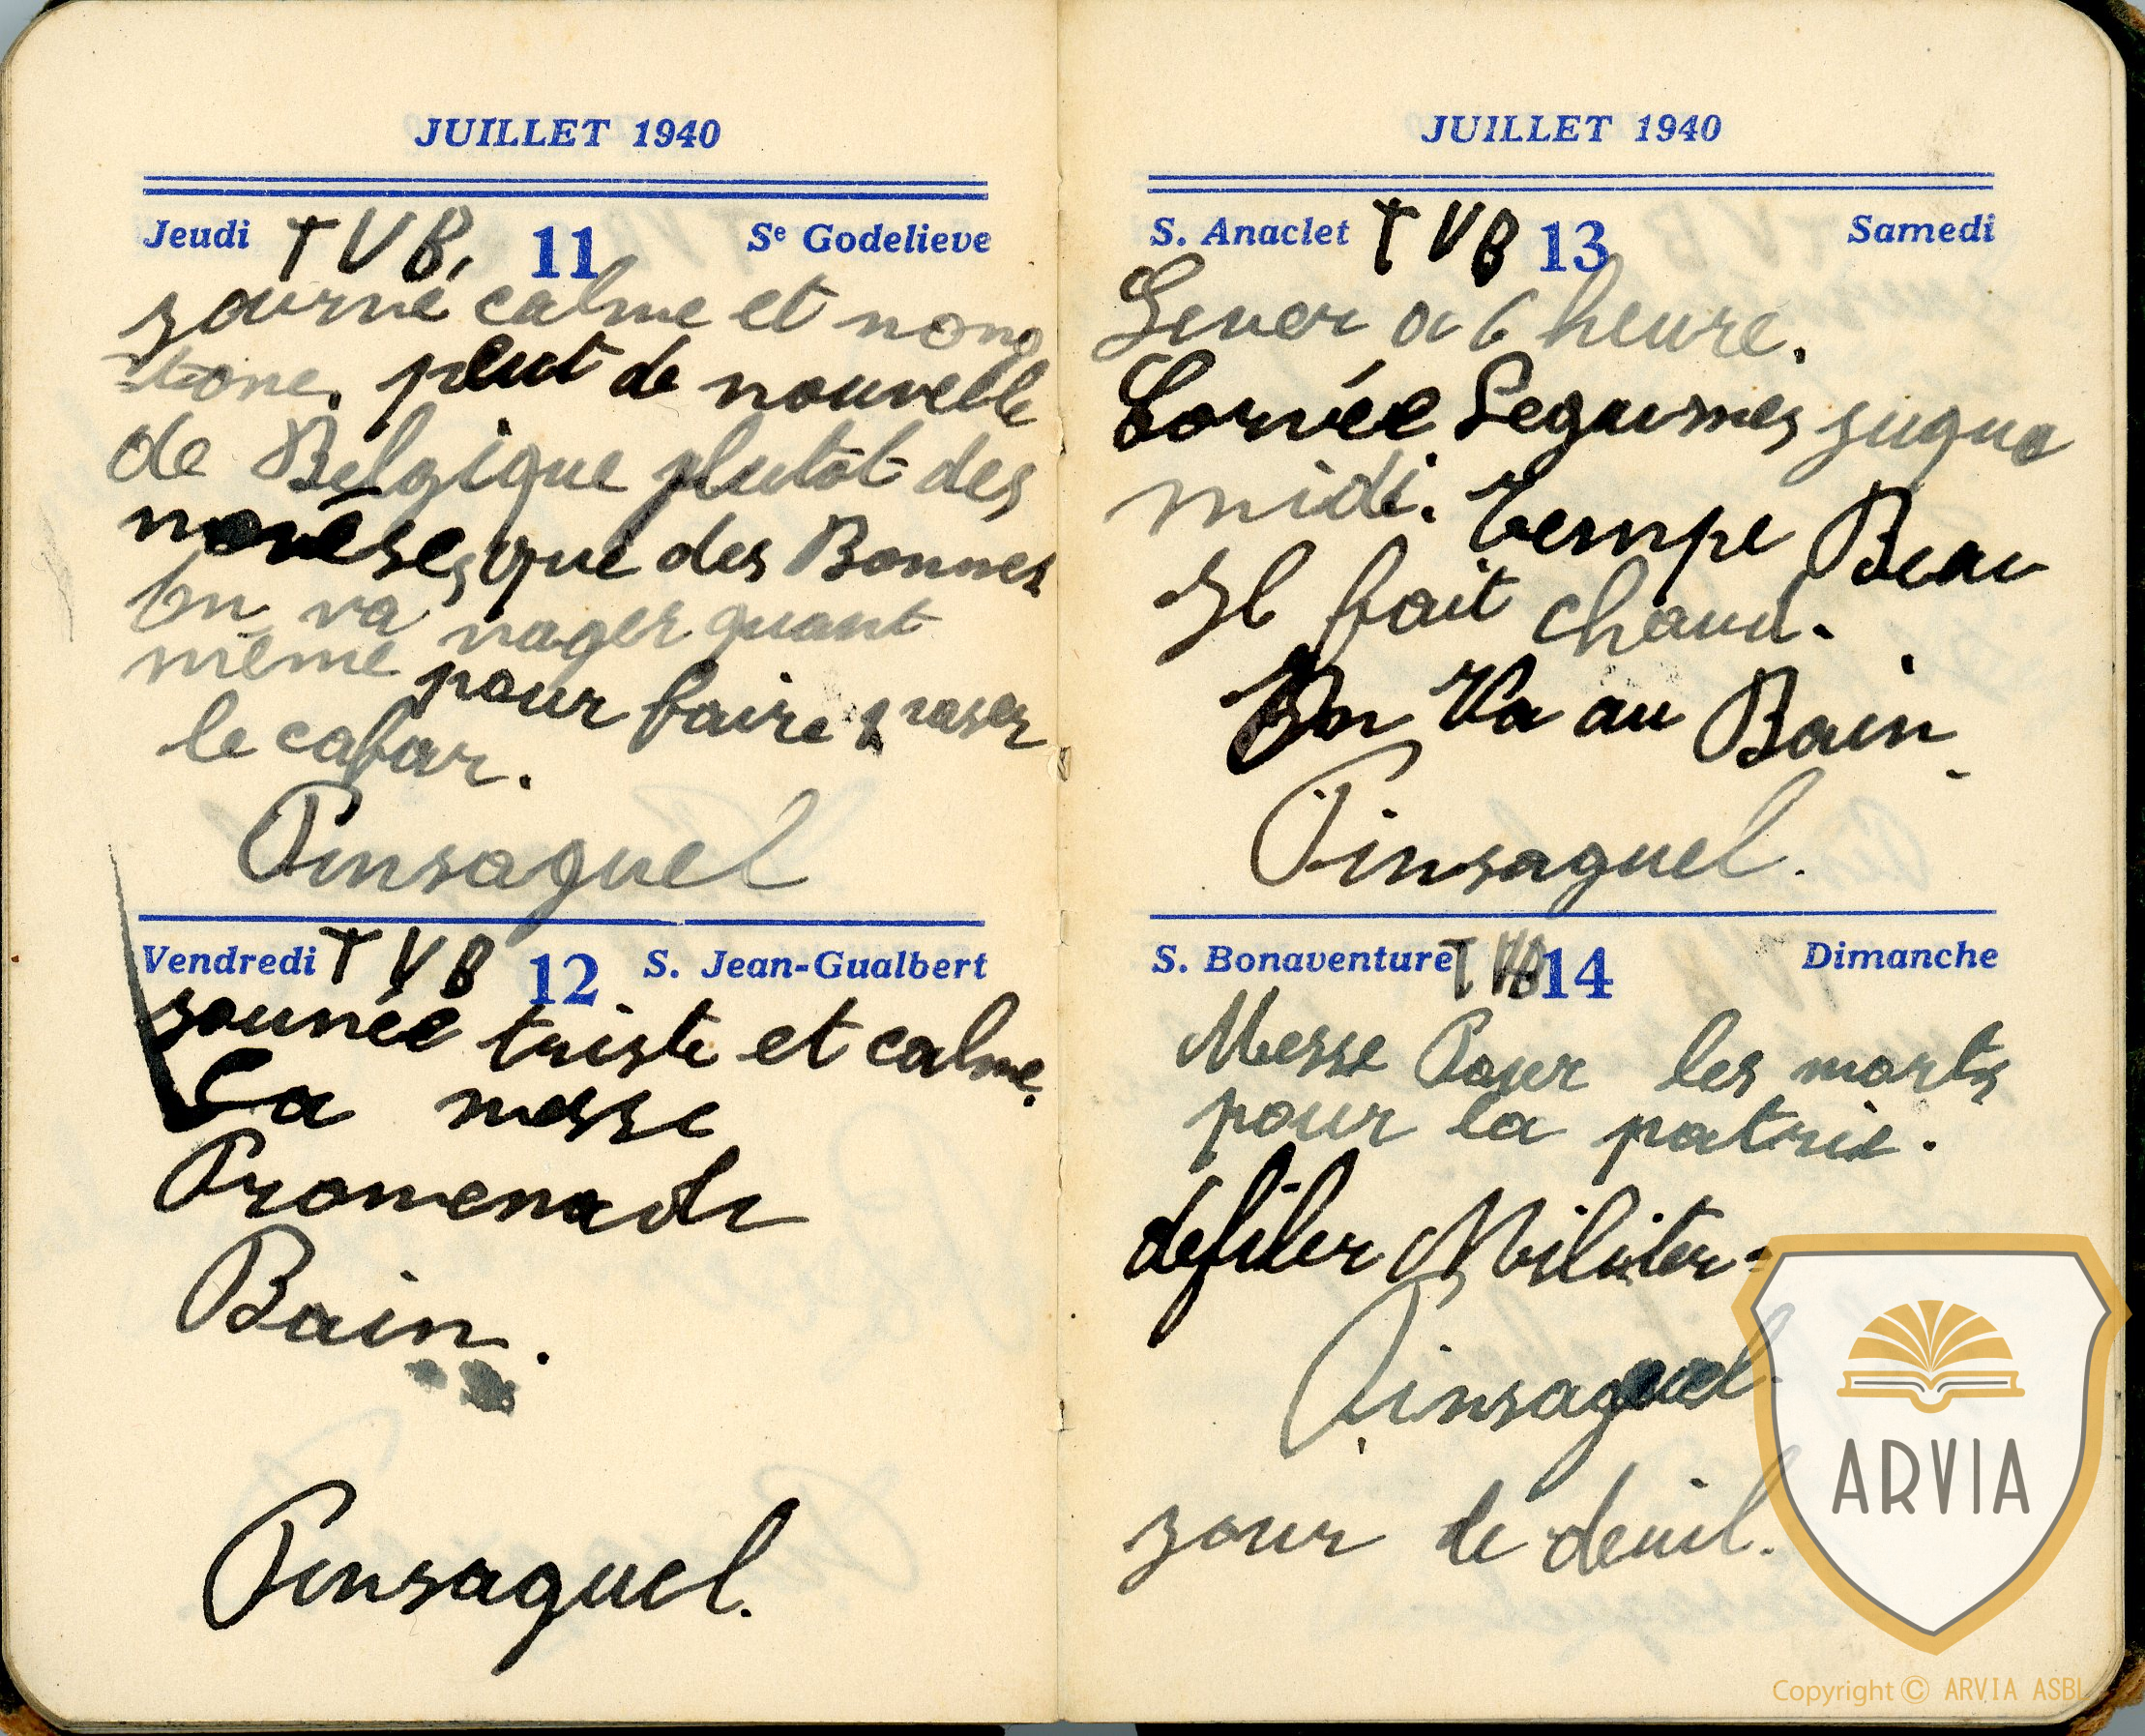 JUILLET 1940
Jeudi TVB. 11 Se Godelieve
journé calme et mono
tone. peut de nouvelle
de Belgique plutôt des
que des Bonnes
On va nager quant
même pour faire passer
le cafar.
Pinsaguel
Vendredi TVB 12 S. Jean-Gualbert
jounée triste et calme.
La messe
Promenade
Bain.
Pinsaguel.
JUILLET 1940
S. Anaclet TVB 13 Samedi
Lever a 6 heure.
Corvée Legumes juqua
midi. Tempe Beau
Il fait chaud.
On Va au Bain.
Pinsaguel.
S. Bonaventure TVB 14 Dimanche
Messe Pour les morts
pour la patrie.
defiler Militer
Pinsaguel.
jour de deuil.
ARVIA
Copyright © ARVIA ASBL